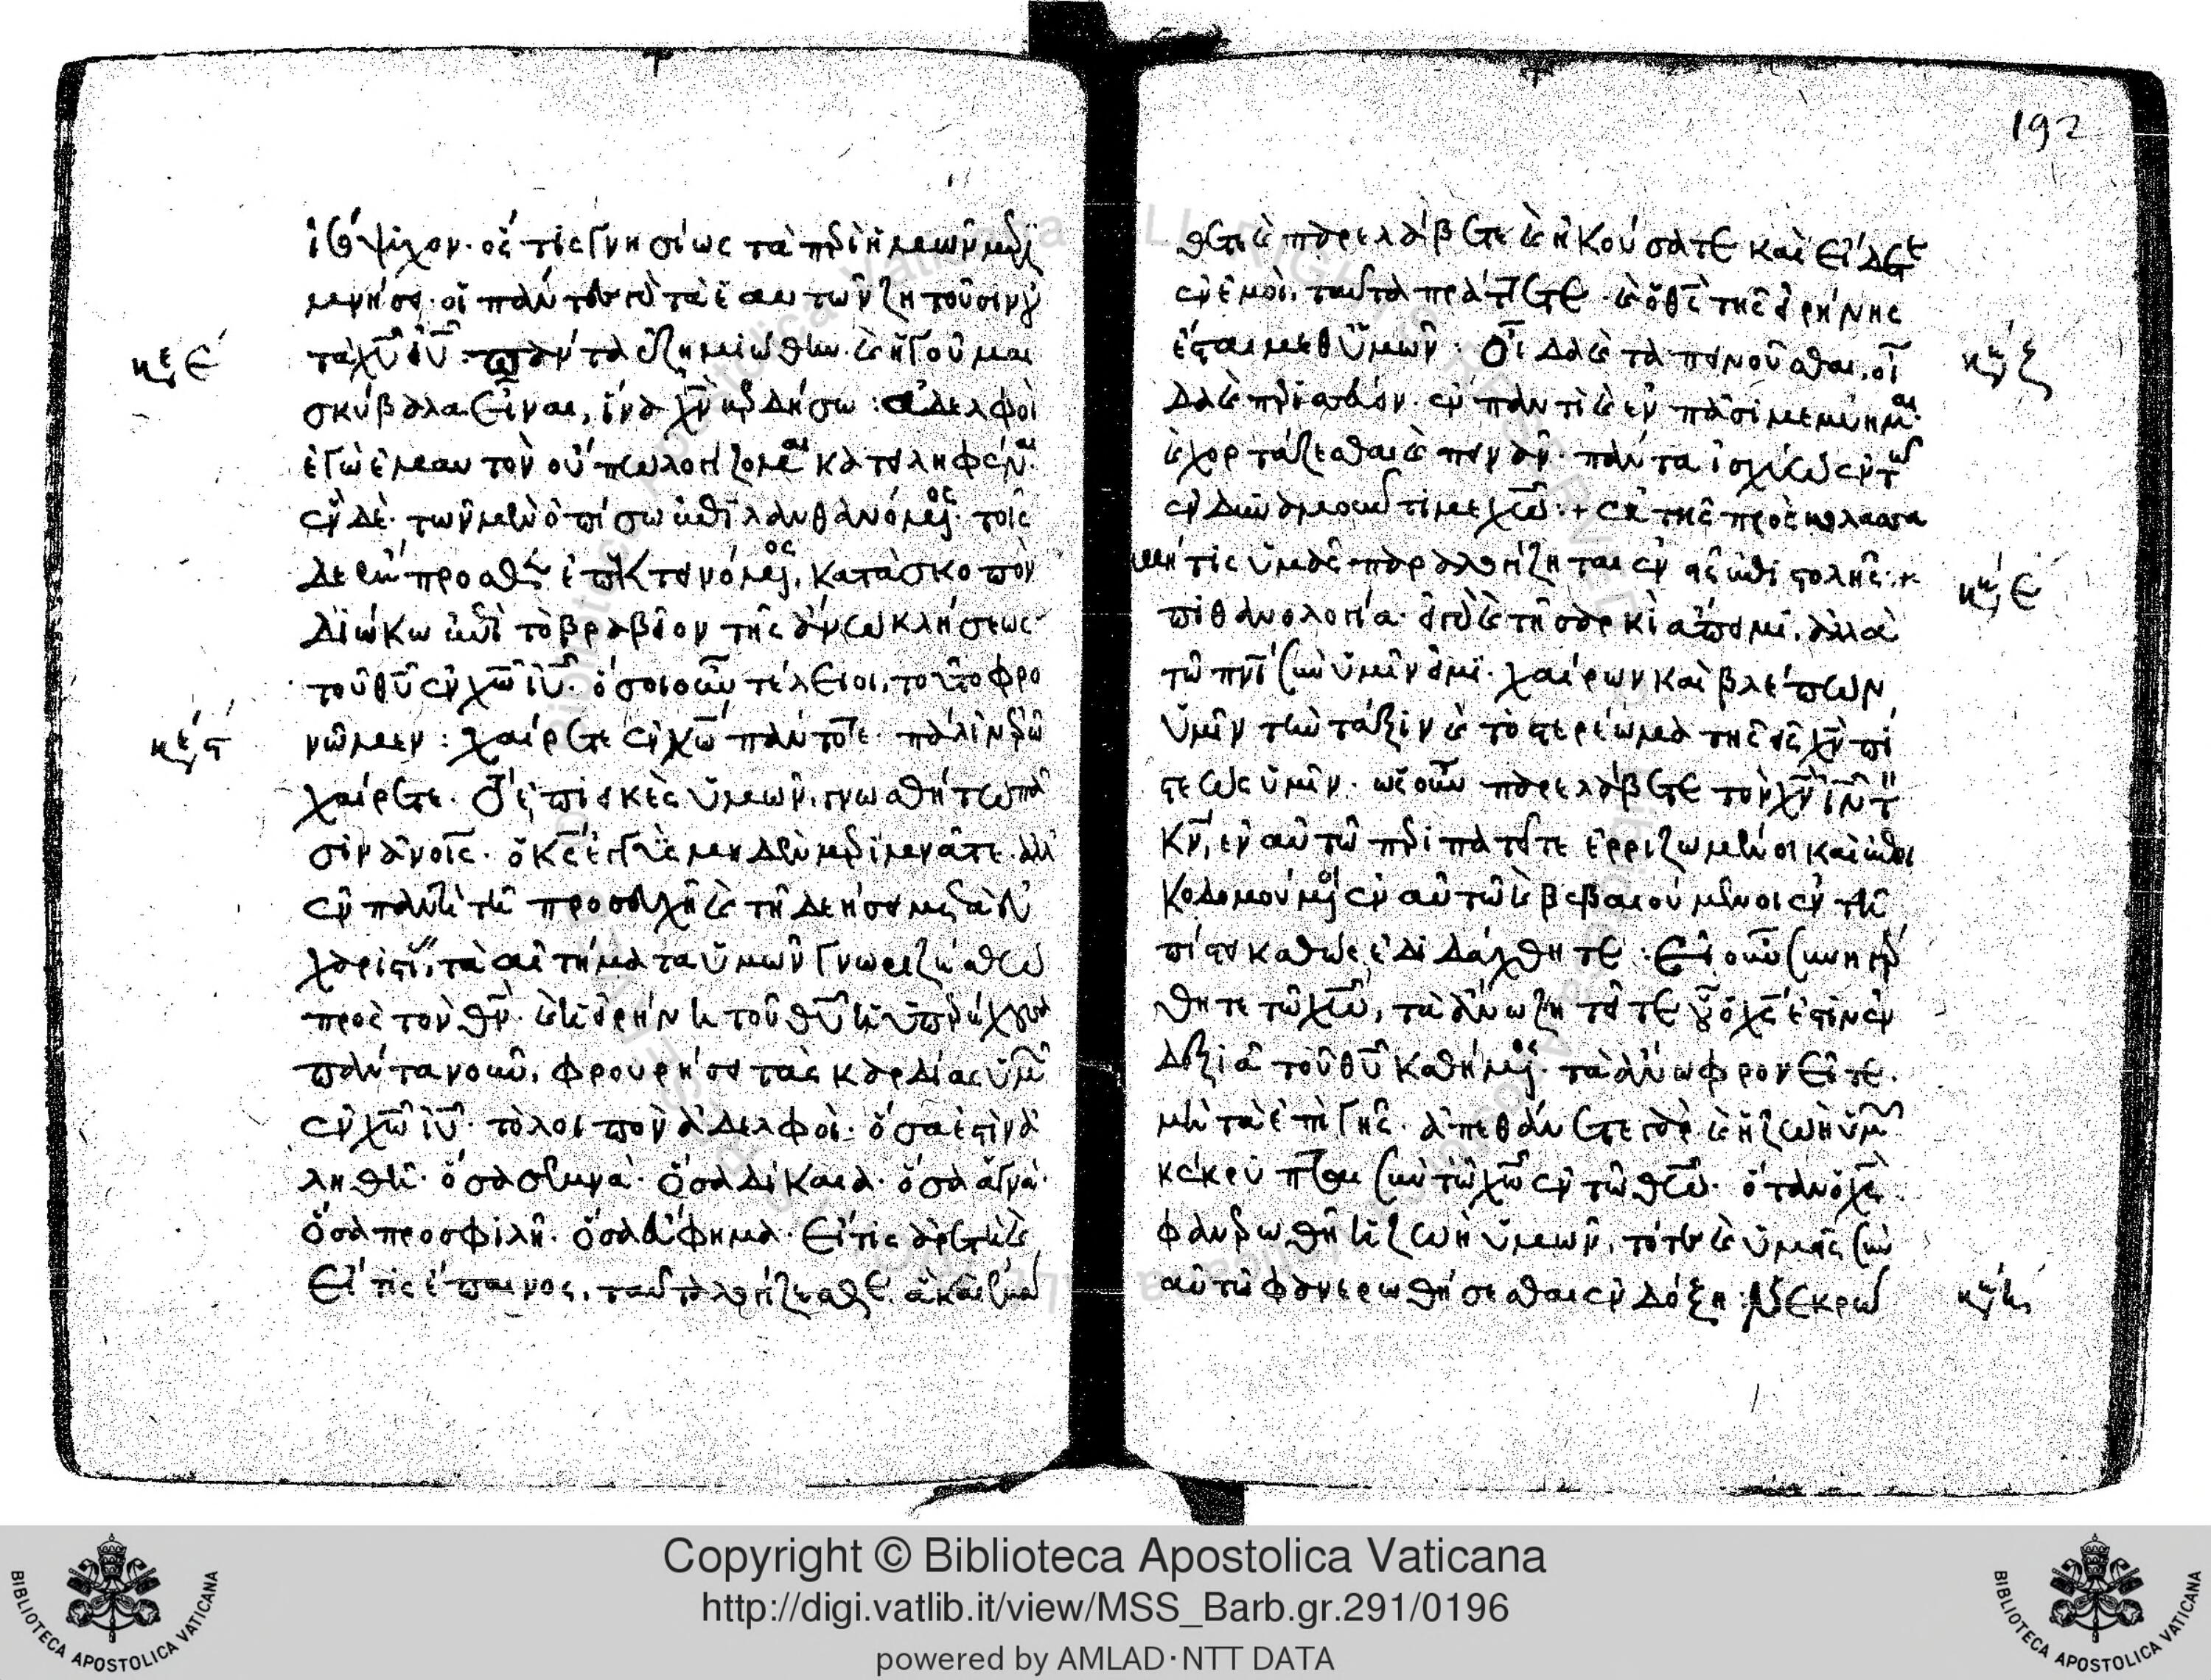 ἰσόψυχον. ὅς τις γνησίως τὰ περὶ ἡμῶν μερι
μνήσει. οἱ πάντες τὰ ἑαυτῶν ζητοῦσιν οὐ
τὰ χῡ ιῡ. πάντα ἐζημιώθην. καὶ ἡγοῦμαι
κε ε
σκύβαλα εἶναι, ἵνα χν κερδήσω : ἀδελφοὶ
ἐγὼ ἐμαυτὸν οὔπω λογίζομαι κατειληφέναι.
ἓν δέ. τῶν μὲν ὀπίσω ἐπιλανθανόμενος. τοῖς
δὲ ἔμπροσθεν ἐπεκτεινόμενος, κατὰ σκοπὸν
διώκω ἐπὶ τὸ βραβεῖον τῆς ἄνω κλήσεως
τοῦ θῡ ἐν χω ιῡ. ὅσοι οὖν τέλειοι, τοῦτο φρο
κε ϛ
νῶμεν : χαίρετε ἐν κω πάντοτε. πάλιν ἐρῶ
χαίρετε. τὸ ἐπιεικὲς ὑμῶν γνωσθήτω πᾶ
σιν ἀνοις. ὁ κς ἐγγύς μηδὲν μεριμνᾶτε. ἀλλ'
ἐν παντὶ τῆ προσευχῆ καὶ τῆ δεήσει μετὰ εὐ
χαριστί, τὰ αἰτήματα ὑμῶν γνωριζέσθω
πρὸς τὸν θν. καὶ ἡ εἰρήνη τοῦ θῡ ἡ ὑπερέχουσα
πάντα νοῦν, φρουρήσει τὰς καρδίας ὑμῶν
ἐν χω ιῡ. τὸ λοιπὸν ἀδελφοί. ὅσα ἐστὶν ἀ
ληθῆ. ὅσα σεμνά. ὅσα δίκαια. ὅσα ἁγνά.
ὅσα προσφιλῆ. ὅσα εὔφημα. εἴ τις ἀρετὴ καὶ
εἴ τις ἔπαινος, ταῦτα λογίζεσθε. ἃ καὶ ἐμά
192
θετε καὶ παρελάβετε καὶ ἠκούσατε καὶ εἴδετε
ἐν ἐμοί, ταῦτα πράττετε. καὶ ὁ θς τῆς εἰρήνης
ἔσται μεθ' ὑμῶν : οἶδα καὶ ταπεινοῦσθαι, οἶ
κε ζ
δα καὶ περισσεύειν. ἐν παντὶ καὶ ἐν πᾶσι μεμύημαι.
καὶ χορτάζεσθαι καὶ πεινᾶν. πάντα ἰσχύω ἐν τῶ
ἐνδυναμοῦντί με χω :+ ἐκ τῆς πρὸς κολασσα
μή τις ὑμᾶς παραλογίζηται ἐν
κε ε
πιθανολογία. εἰ γὰρ καὶ τῆ σαρκὶ ἄπειμι, ἀλλὰ
τῶ πνι σὺν ὑμῖν εἰμί. χαίρων καὶ βλέπων
ὑμῖν τὴν τάξιν καὶ τὸ στερέωμα τῆς εἰς χν πί
στεως ὑμῖν. ὡς οὖν παρελάβετε τὸν χν ιν τὸν
κν, ἐν αὐτῶ περιπατεῖτε ἐρριζωμένοι καὶ ἐποι
κοδομούμενοι ἐν αὐτῶ καὶ βεβαιούμενοι ἐν τῆ
πίστει καθὼς ἐδιδάχθητε : εἰ οὖν συνηγέρ
θητε τῶ χω, τὰ ἄνω ζητεῖτε οὗ ὁ χς ἐστὶν ἐν
δεξιᾶ τοῦ θῡ καθήμενος. τὰ ἄνω φρονεῖτε.
μὴ τὰ ἐπὶ γῆς. ἀπεθάνετε γὰρ καὶ ἡ ζωὴ ὑμῶν
κέκρυπται σὺν τῶ χω ἐν τῶ θω. ὅταν ὁ χς
φανερωθῆ ἡ ζωὴ ὑμῶν, τότε καὶ ὑμεῖς σὺν
αὐτῶ φανερωθήσεσθαι ἐν δόξη : Νεκρώ
κε η
Copyright © Biblioteca Apostolica Vaticana
http://digi.vatlib.it/view/MSS_Barb.gr.291/0196
powered by AMLAD·NTT DATA
BIBLIOTECA APOSTOLICA VATICANA
BIBLIOTECA APOSTOLICA VATICANA